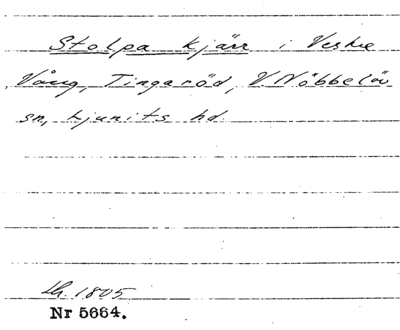 Stolpa kjärr i Vestre
Vång, Tingaröd, V. Nöbbelöv
sn, Ljunits hd
Lh. 1805
Nr 5664.